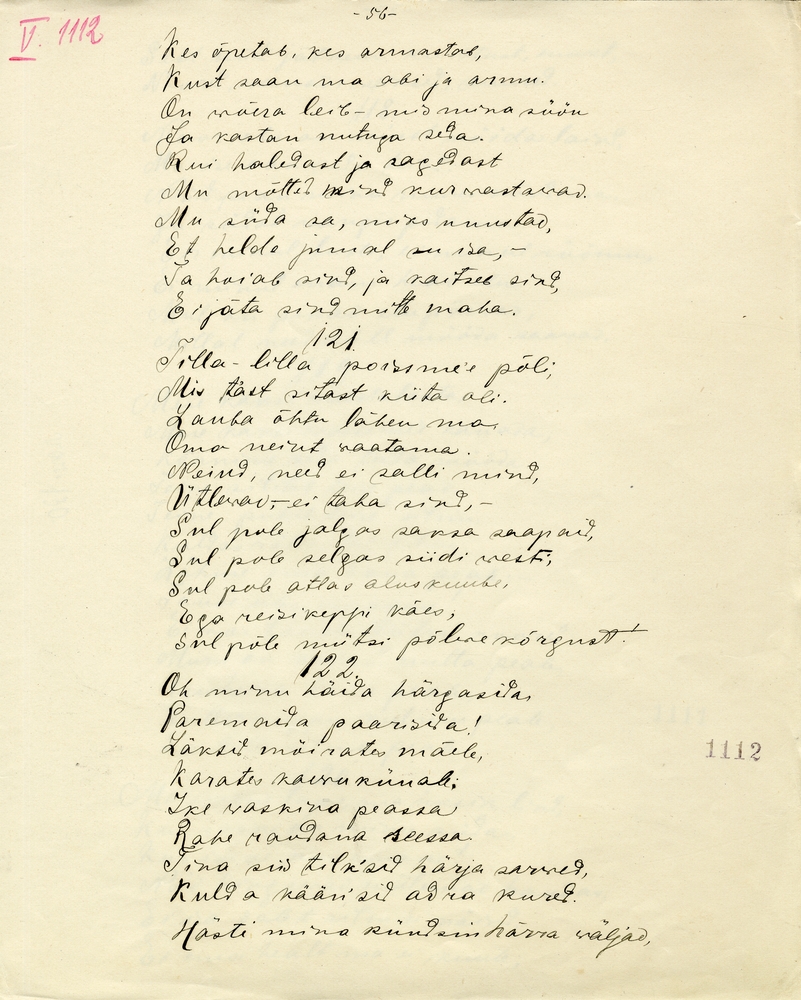 -56-
V. 1112
Kes õpetab, kes armastab,
Kust saan ma abi ja armu.
On wõera leib - mis mina söön
Ja kastan nutuga seda.
Kui haledast ja sagedast
Mu mõtted sind kurwastawad.
Mu süda sa, miks unustad,
Et helde jumal su isa, -
Ta hoiab sind, ja kaitseb sind,
Ei jäta sind mitte maha.
121.
Tilla-lilla poissmee põli,
Mis tast sitast kiita oli.
Lauba õhtu lähen ma
Oma neiut waatama.
Neiud, need ei salli mind,
Ütlewad, - ei taha sind, -
Sul pole jalgas saksa saapaid,
Sul pole selgas siidi westi,
Sul pole atlas aluskuube,
Ega reisikeppi käes,
Sul pole mütsi põlwekõrgust!
122.
Oh minu häida härgasida,
Paremaida paarisida!
Läksid möirates mäele,
Karates kaewukünale;
Ike waskina peassa
Rahe raudana seessa.
Tina siis tilksid härja sarwed,
Kulda käärisid adra kured.
Hästi mina kündsin härra wäljad,
1112